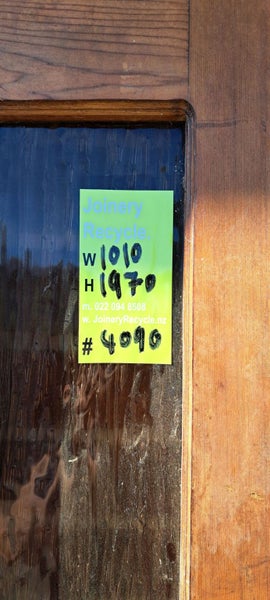 Joinery
Recycle.
W 1010
H 1970
m. 022 094 8566
w. JoineryRecycle.nz
# 4090